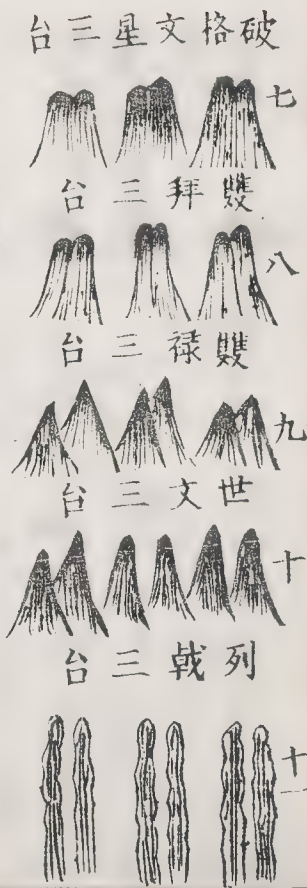 破格文星三台
七
雙拜三台
八
雙禄三台
九
世文三台
十
列戟三台
十一